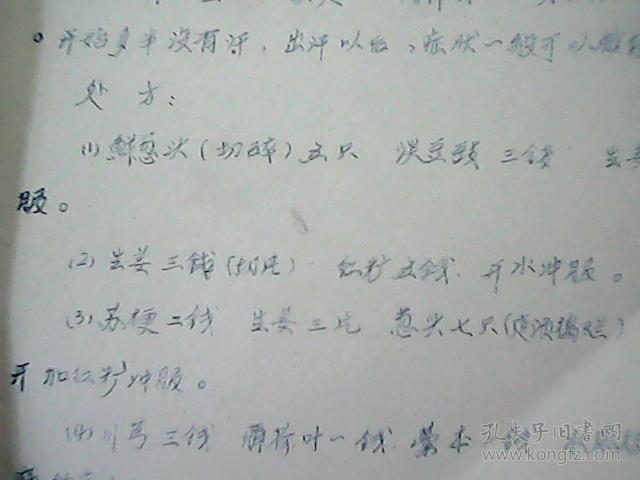 。开始多半没有汗，出汗以后，症状一般可以
处方：
(1)鲜葱头（切碎）五只 淡豆豉 三钱 生姜
服。
(2)生姜三钱(切片) 红糖五钱. 开水冲服。
(3)苏梗二钱 生姜三片 葱头七只(连须捣烂)
开 加红糖冲服。
(4)川芎三钱 薄荷叶一钱 藁本
孔夫子旧书网
www.kongfz.com